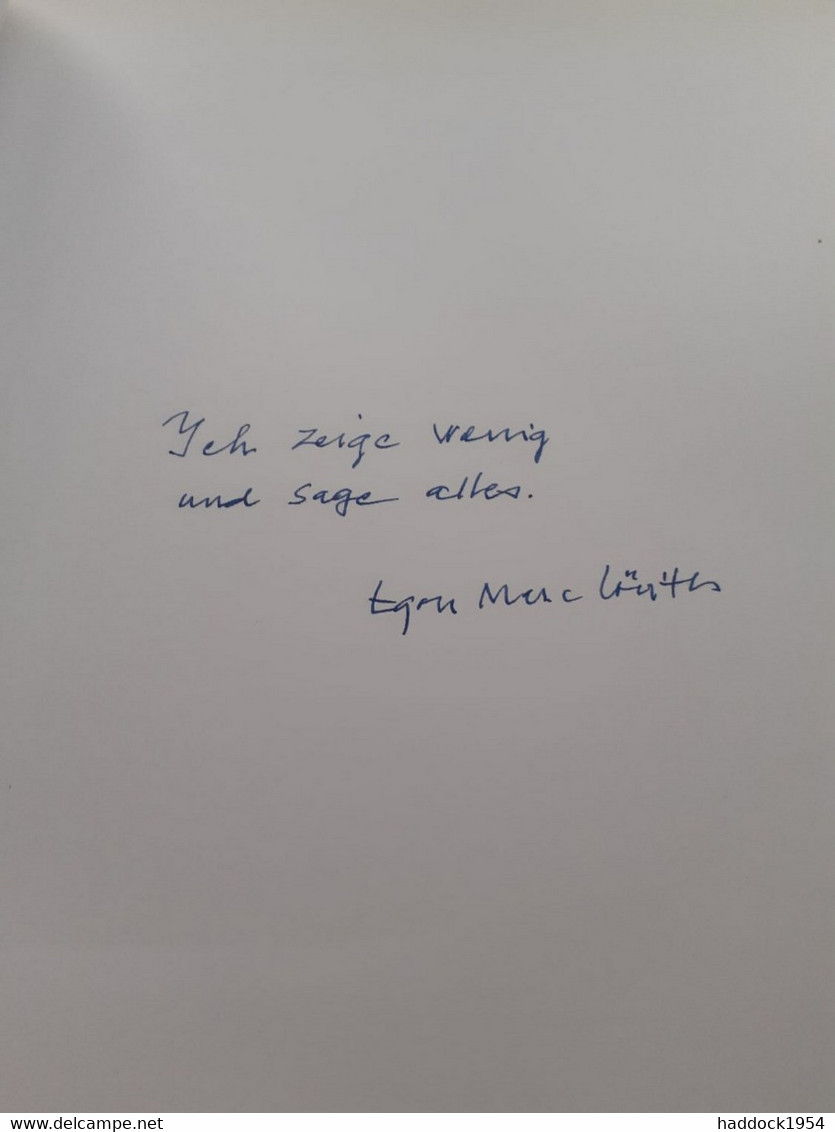 Ich zeige wenig
und sage alles.
Egon Marc Löwith
www.delcampe.net
haddock1954